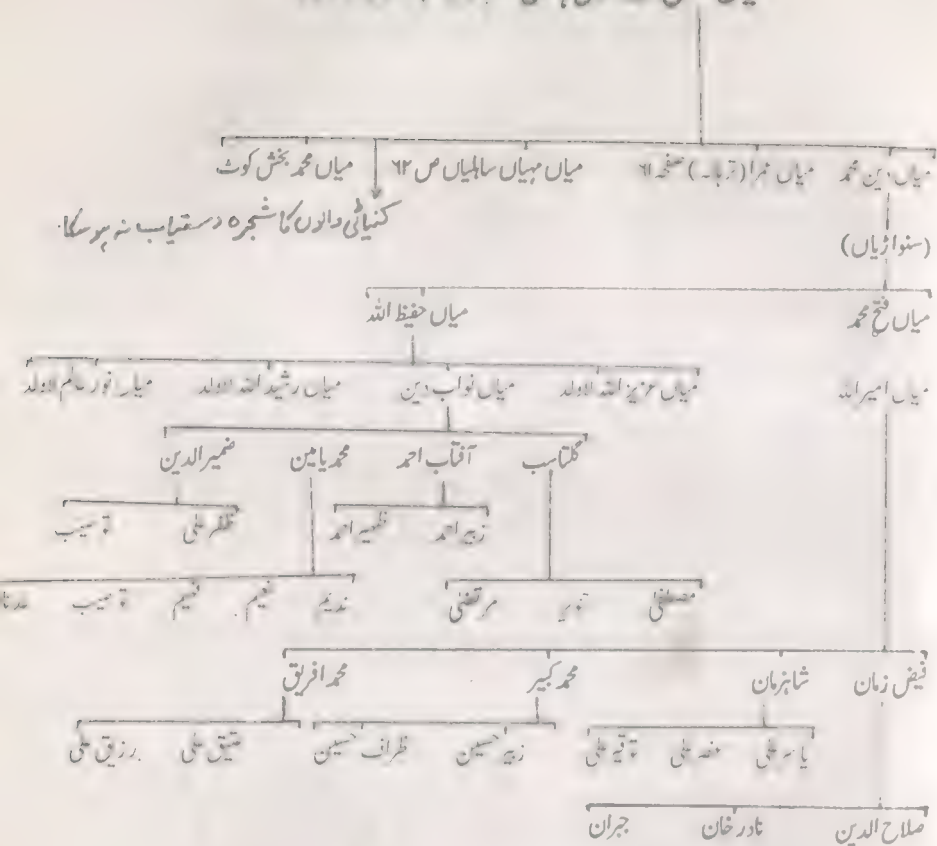 میاں دین محمد میاں نمرا (ترہالہ) صفحہ ۶۱ میاں مہیاں سالہلیاں ص ۶۲ میاں محمد بخش کوٹ
کنیائی والوں کا شجرہ دستیاب نہ ہو سکا۔
(سنواڑیاں)
میاں فتح محمد میاں حفیظ اللہ
میاں امیر اللہ میاں عزیز اللہ لاولد میاں نواب دین میاں رشید اللہ لاولد میاں نور عالم لاولد
گلتاسب آفتاب احمد محمد یامین ضمیر الدین
زبیر احمد ظہیر احمد ظفر علی توصیب
مصطفیٰ تنویر مرتضیٰ ندیم نعیم فہیم توصیب
فیض زمان شاہزمان محمد کبیر محمد افریق
یاسر علی توقیر علی زبیر حسین ظراف حسین عتیق علی رزیق علی
صلاح الدین نادر خان جبران